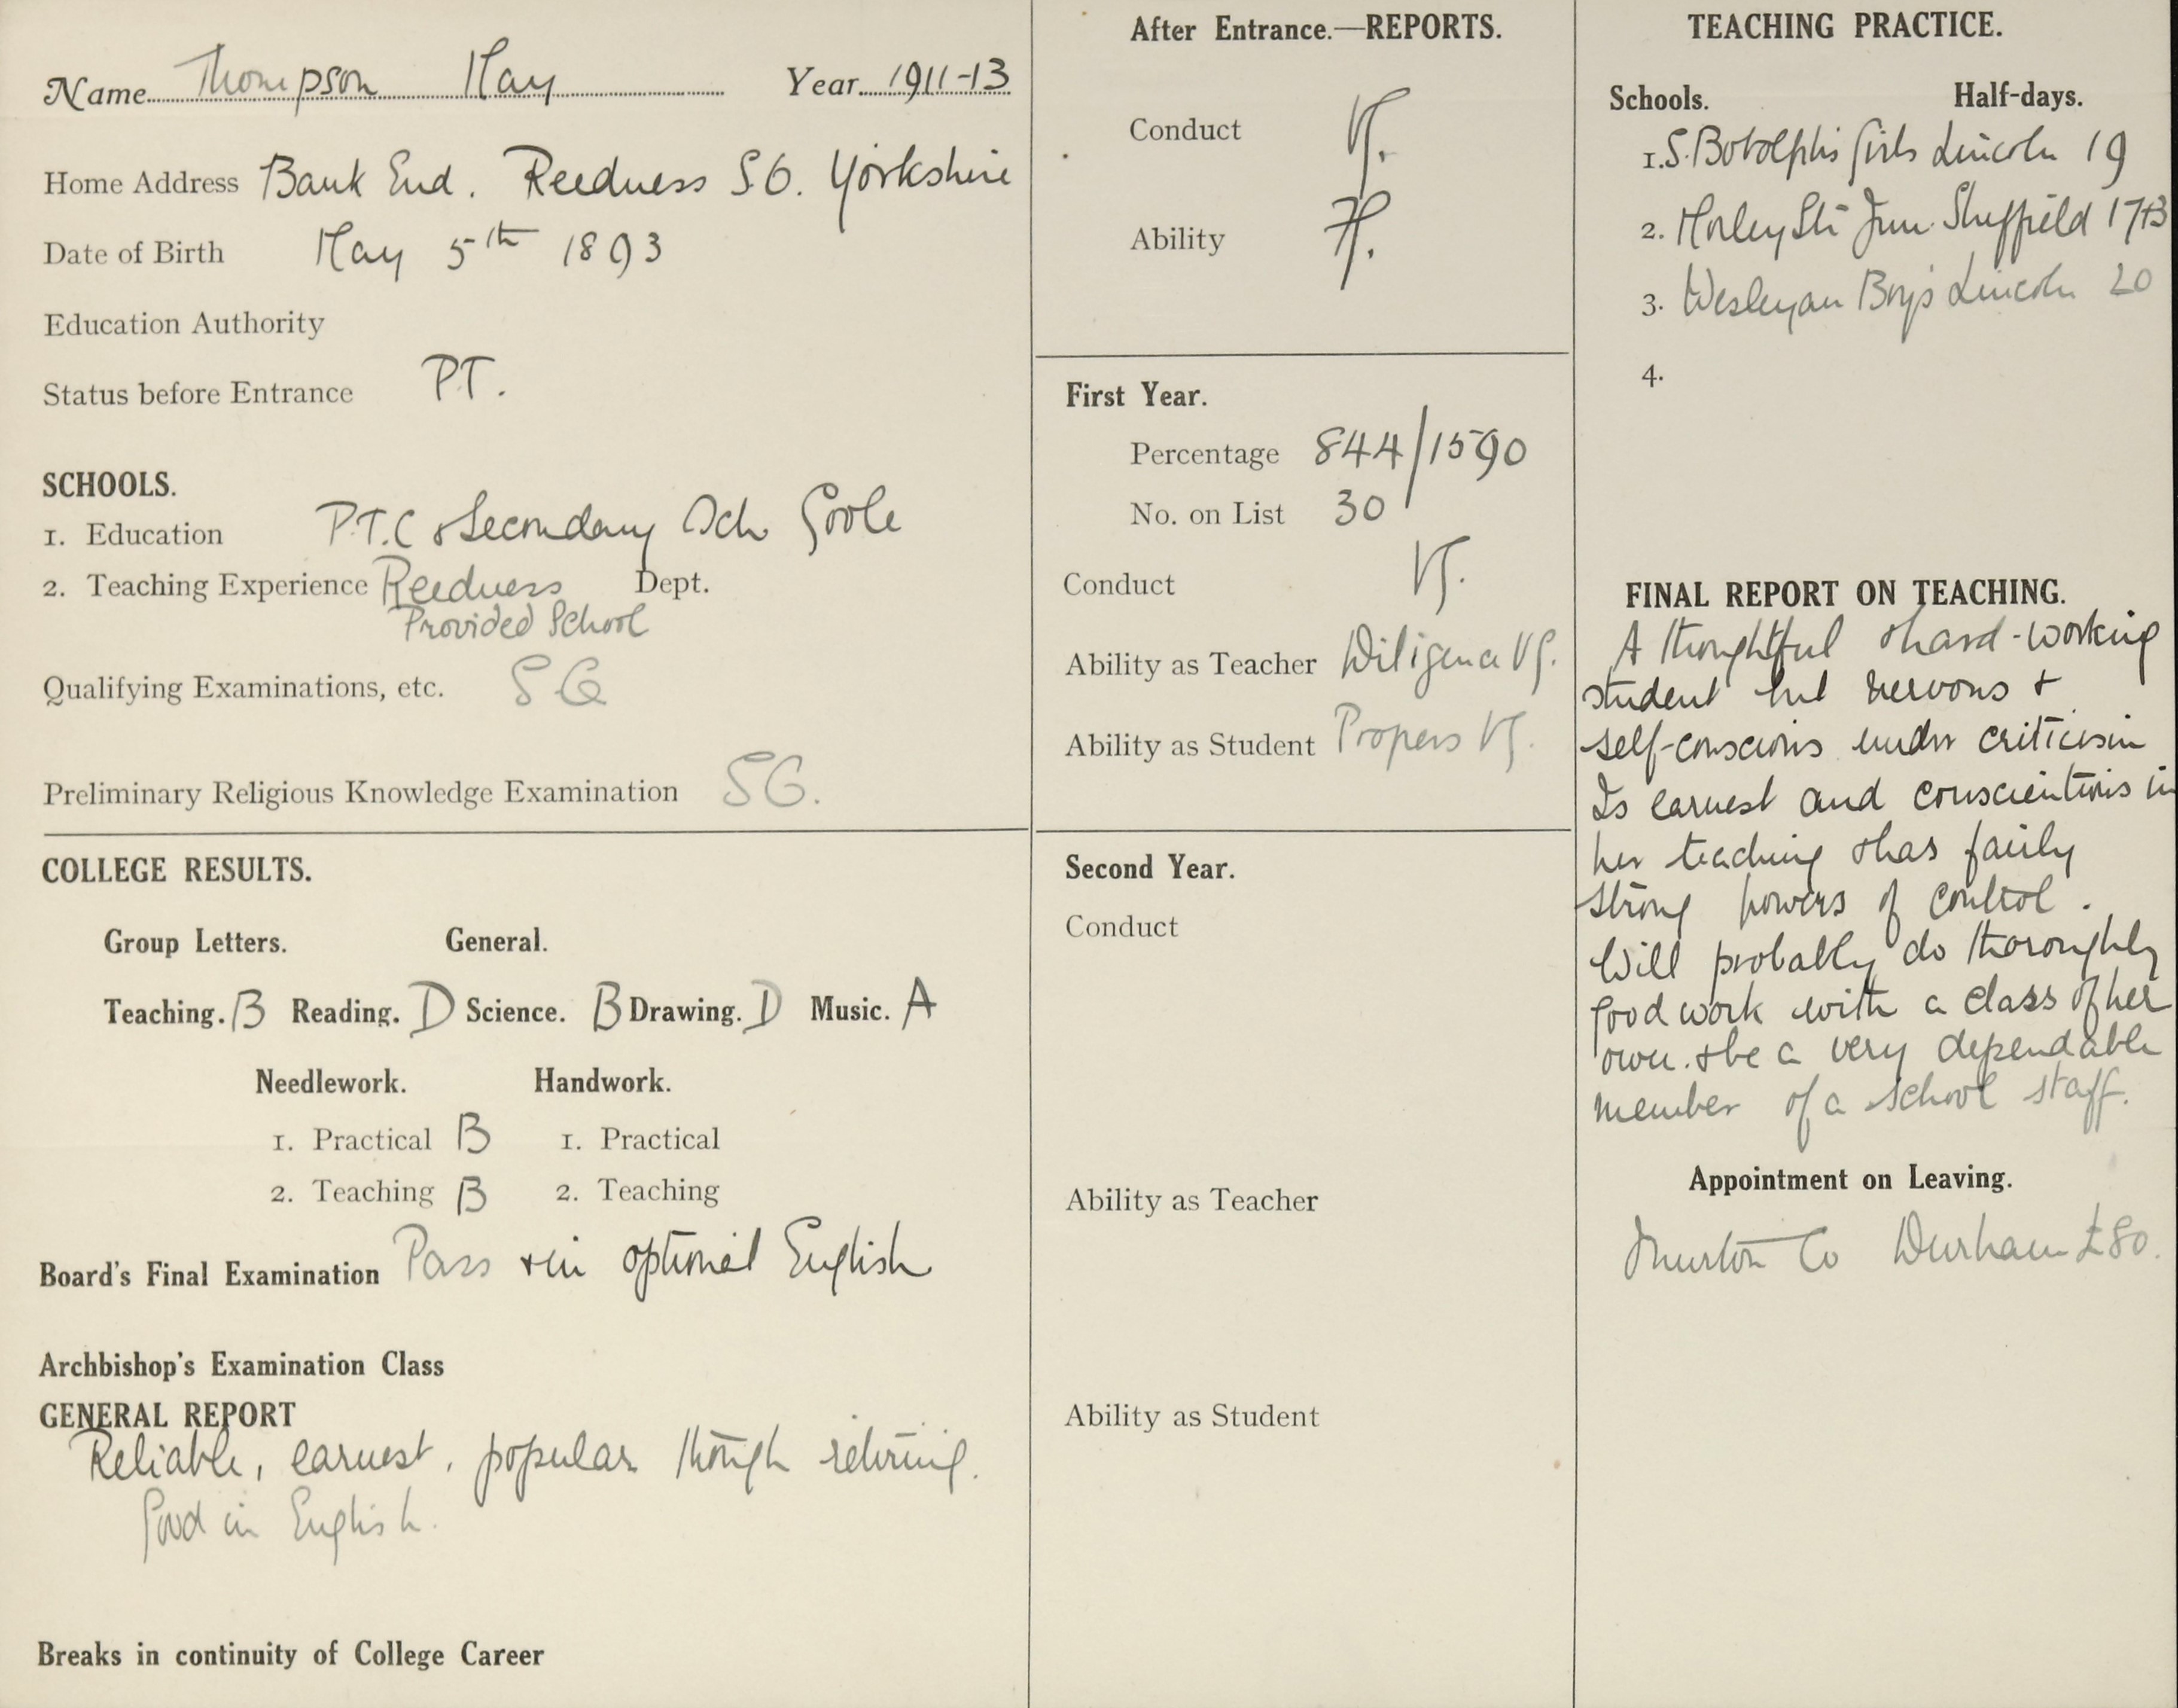 Name Thompson May Year 1911-13
Home Address Bank End. Reedness S.O. Yorkshire
Date of Birth May 5th 1893
Education Authority
Status before Entrance P.T.
SCHOOLS.
1. Education P.T.C & Secondary Sch. Goole
2. Teaching Experience Reedness Dept.
Provided School
Qualifying Examinations, etc. SG
Preliminary Religious Knowledge Examination SG.
COLLEGE RESULTS.
Group Letters. General.
Teaching. B Reading. D Science. B Drawing. D Music. A
Needlework. Handwork.
1. Practical B 1. Practical
2. Teaching B 2. Teaching
Board's Final Examination Pass & in optional English
Archbishop's Examination Class
GENERAL REPORT
Reliable, earnest, popular though retiring.
Good in English.
Breaks in continuity of College Career
After Entrance.—REPORTS.
Conduct VG.
Ability
First Year.
Percentage 844/1590
No. on List 30
Conduct VG.
Ability as Teacher Diligence VG.
Ability as Student Progress VG.
Second Year.
Conduct
Ability as Teacher
Ability as Student
TEACHING PRACTICE.
Schools. Half-days.
1. S. Botolph's Girls Lincoln 19
2. Morley St Jun. Sheffield 17+3
3. Wesleyan Boys Lincoln 20
4.
FINAL REPORT ON TEACHING.
A thoughtful & hard-working
student but nervous &
self-conscious under criticism
Is earnest and conscientious in
her teaching & has fairly
strong powers of control.
Will probably do thoroughly
good work with a class of her
own. & be a very dependable
member of a school staff.
Appointment on Leaving.
Murton Co Durham £80.